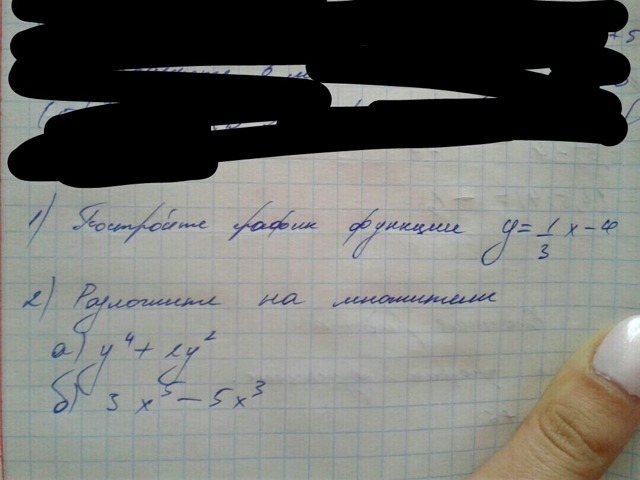 +5
1) Постройте график функции y = 1/3 x - 4
2) Разложите на множители
а) y⁴ + 2y²
б) 3x⁵ - 5x³